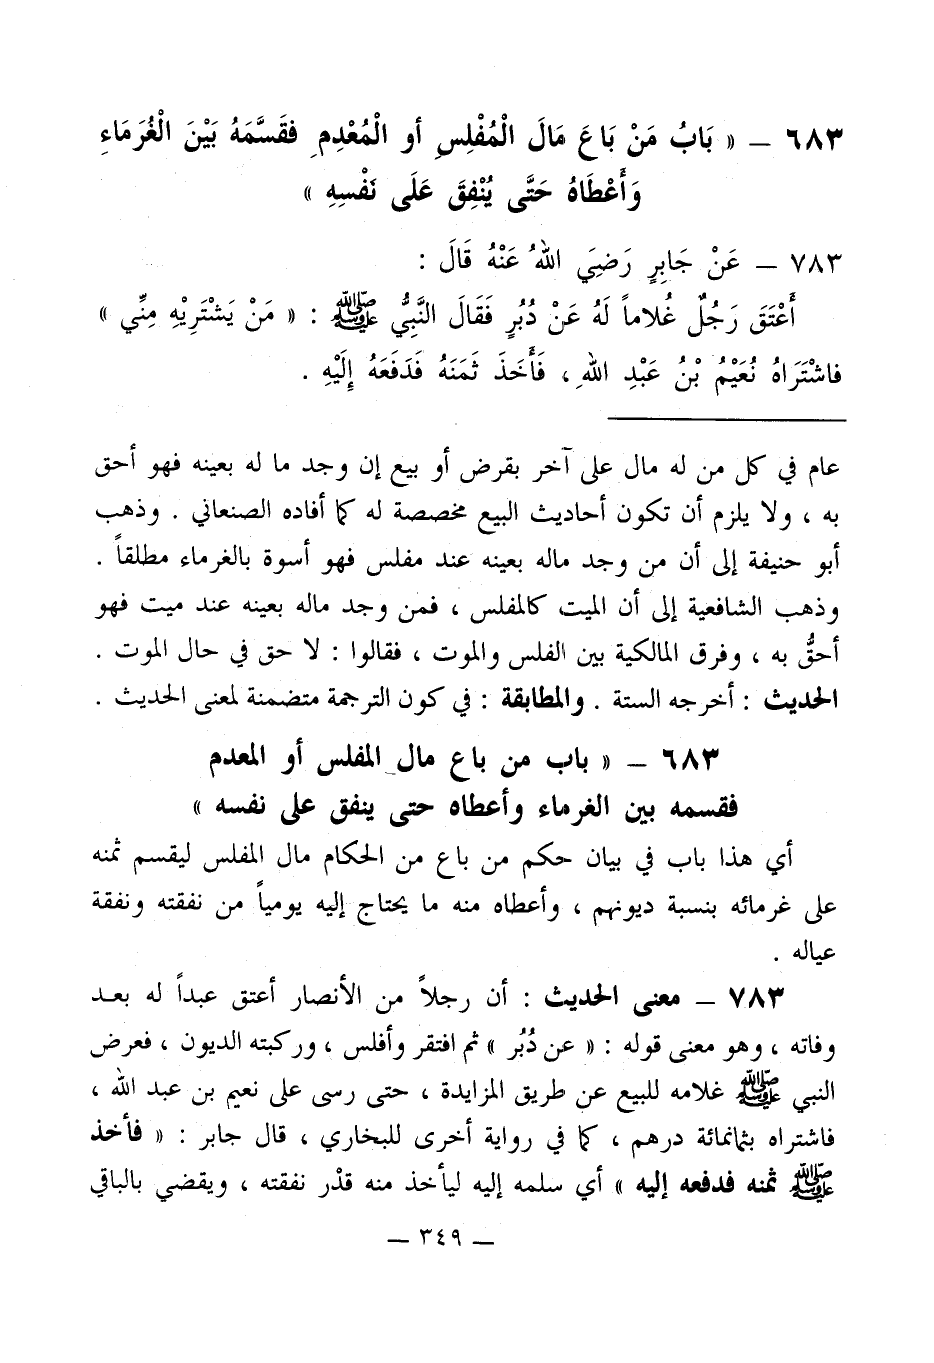 ٦٨٣ ــ « بَابُ مَنْ بَاعَ مَالَ الْمُفْلِسِ أو الْمُعْدِمِ فقَسَّمَهُ بَيْنَ الْغُرَمَاءِ
وَأَعْطَاهُ حَتَّى يُنْفِقَ عَلَى نَفْسِهِ »
٧٨٣ ــ عَنْ جَابِرٍ رَضِيَ اللهُ عَنْهُ قَالَ :
أَعْتَقَ رَجُلٌ غُلاماً لَهُ عَنْ دُبُرٍ فَقَالَ النَّبِيُّ ﷺ : « مَنْ يَشْتَرِيْهِ مِنِّي »
فاشْتَرَاهُ نُعَيْمُ بْنُ عَبْدِ اللهِ ، فَأَخَذَ ثَمَنَهُ فَدَفَعَهُ إِلَيْهِ .
عام في كل من له مال على آخر بقرض أو بيع إن وجد ما له بعينه فهو أحق
به ، ولا يلزم أن تكون أحاديث البيع مخصصة له كما أفاده الصنعاني . وذهب
أبو حنيفة إلى أن من وجد ماله بعينه عند مفلس فهو أسوة بالغرماء مطلقاً .
وذهب الشافعية إلى أن الميت كالمفلس ، فمن وجد ماله بعينه عند ميت فهو
أحقُّ به ، وفرق المالكية بين الفلس والموت ، فقالوا : لا حق في حال الموت .
الحديث : أخرجه الستة . والمطابقة : في كون الترجمة متضمنة لمعنى الحديث .
٦٨٣ ــ « باب من باع مال المفلس أو المعدم
فقسمه بين الغرماء وأعطاه حتى ينفق على نفسه »
أي هذا باب في بيان حكم من باع من الحكام مال المفلس ليقسم ثمنه
على غرمائه بنسبة ديونهم ، وأعطاه منه ما يحتاج إليه يومياً من نفقته ونفقة
عياله .
٧٨٣ ــ معنى الحديث : أن رجلاً من الأنصار أعتق عبداً له بعد
وفاته ، وهو معنى قوله : « عن دُبُر » ثم افتقر وأفلس ، وركبته الديون ، فعرض
النبي ﷺ غلامه للبيع عن طريق المزايدة ، حتى رسى على نعيم بن عبد الله ،
فاشتراه بثمانمائة درهم ، كما في رواية أخرى للبخاري ، قال جابر : « فأخذ
ﷺ ثمنه فدفعه إليه » أي سلمه إليه ليأخذ منه قدْر نفقته ، ويقضي بالباقي
ــ ٣٤٩ ــ